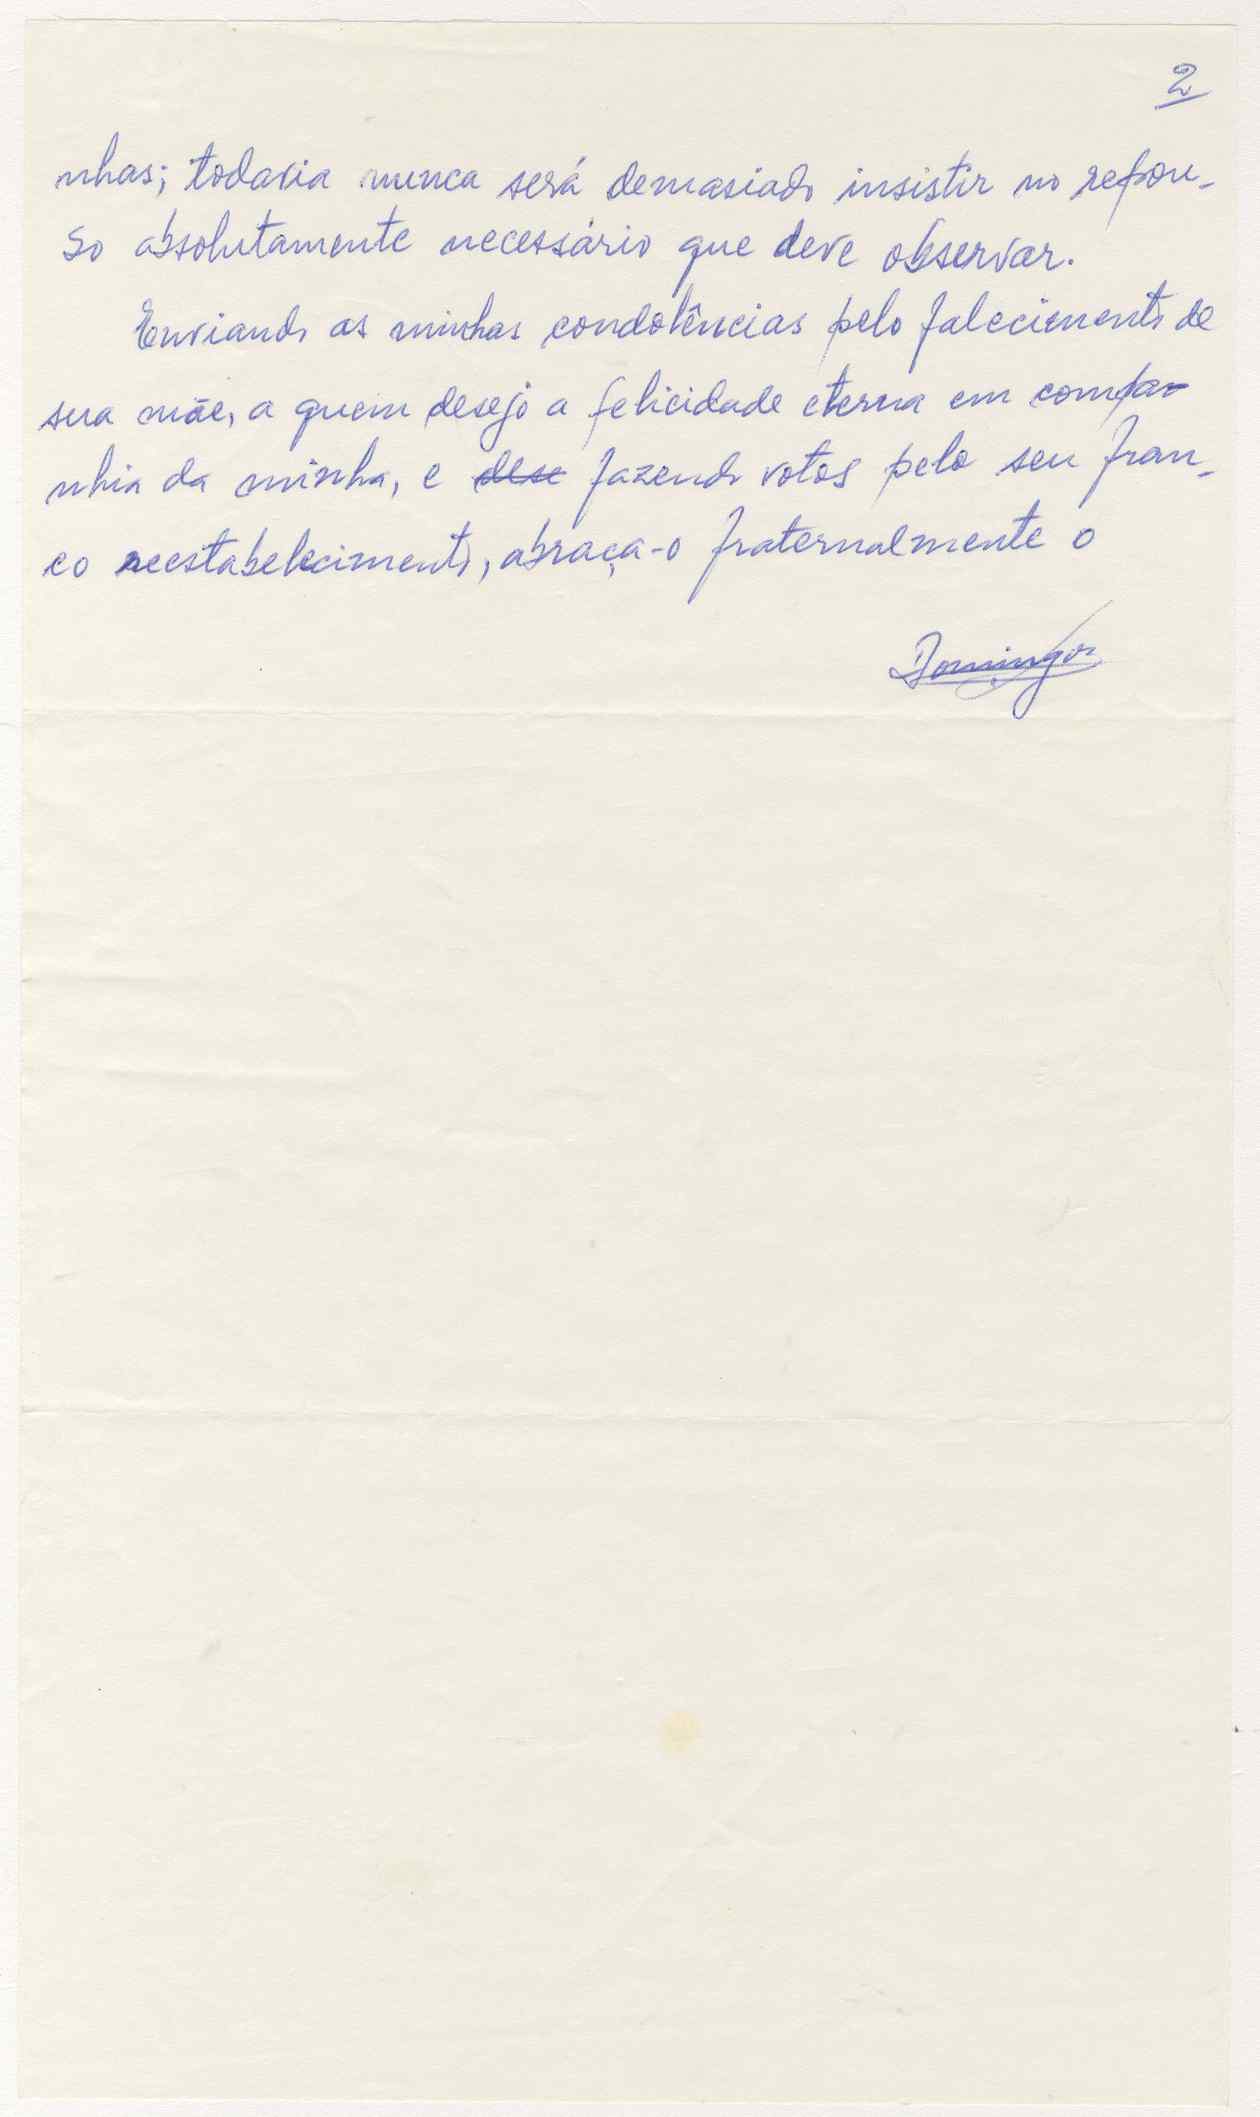 2
nhas; todavia nunca será demasiado insistir no repou-
so absolutamente necessário que deve observar.
Enviando as minhas condolências pelo falecimento de
sua mãe, a quem desejo a felicidade eterna em compa-
nhia da minha, e dese fazendo votos pelo seu fran-
co reestabelecimento, abraça-o fraternalmente o
Domingos